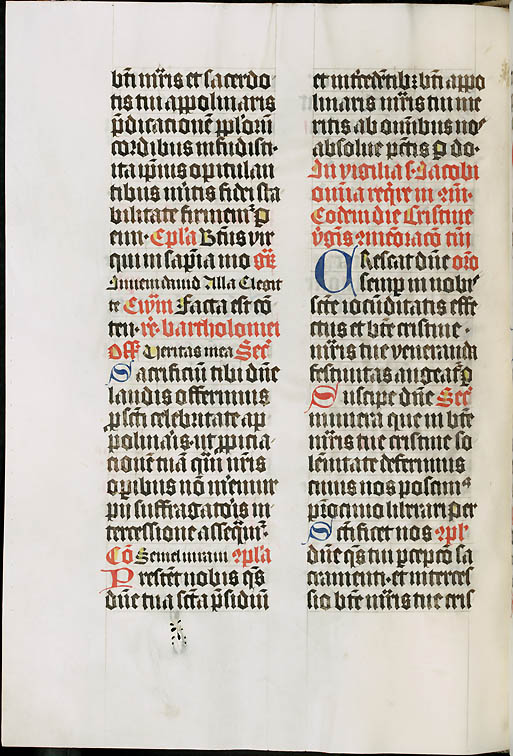 bti mris et sacerdo
tis tui appolinaris
pdicacione pploru
cordibus infudisti
ita ipsius opitulan
tibus mitis fidei sta
bilitate firment p
eun. Epla Btus vir
qui in sapia mo Gr
Inveni dauid Alla Elegit
te Ewm Facta est co
ten. re. bartholomei
Off Veritas mea Secr
Sacrificiu tibi dne
laudis offerimus
p scti celebritate ap
polinaris. ut ppicia
cione tua qui nris
opibus no memur
pii suffragatois in
tercessione assequi.
Co Semel iuraui cpla
Prestet nobis qs
dne tua scta psidiu
et intercedetib bti appo
linaris mris tui me
ritis ab omibus no
absolue pctis p do.
In vigilia s. Jacobi
omia reqre in
Eodem die Cristine
vgis
Crescat dne oro
semp in nobis
scte iocuditatis effe
ctus et bte cristine.
mris tue venerandi
festiuitas augeat p
Suscipe dne Secr
munera que in bte
mris tue cristine so
lenitate deferimus
cuius nos poscim
procinio liberari per
Sctificet nos cpl
dne qs tui pcepco sa
cramenti. et interces
sio bte mris tue cris